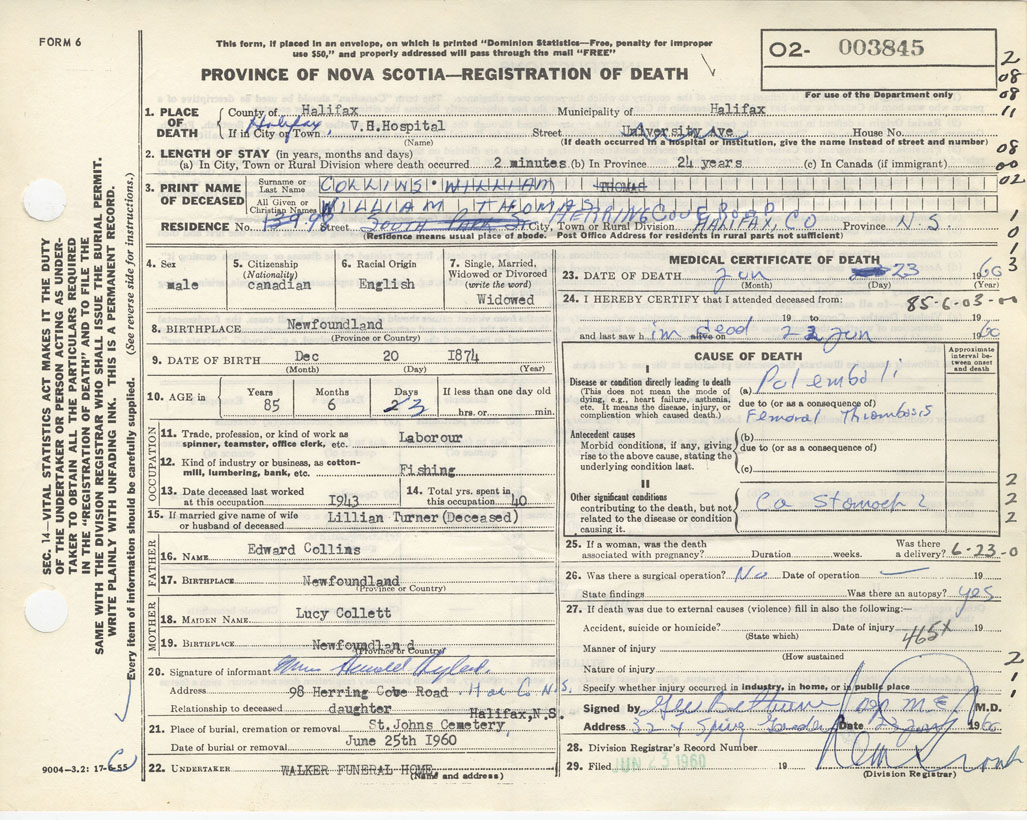 FORM 6
This form, if placed in an envelope, on which is printed "Dominion Statistics—Free, penalty for improper
use $50," and properly addressed will pass through the mail "FREE"
O2- 003845
PROVINCE OF NOVA SCOTIA—REGISTRATION OF DEATH
For use of the Department only
2
08
08
11
08
00
02
1
0
1
3
1. PLACE OF DEATH
County of Halifax Municipality of Halifax
If in City or Town Halifax, V.H.Hospital Street University Ave House No.
(Name) (If death occurred in a hospital or institution, give the name instead of street and number)
2. LENGTH OF STAY (in years, months and days)
(a) In City, Town or Rural Division where death occurred 2 minutes (b) In Province 24 years (c) In Canada (if immigrant)
3. PRINT NAME OF DECEASED
Surname or Last Name COLLINS · WILLIAM THOMAS
All Given or Christian Names WILLIAM THOMAS
RESIDENCE No. 98 Street South Park St City, Town or Rural Division HERRING COVE ROAD HALIFAX, CO Province N.S.
(Residence means usual place of abode. Post Office Address for residents in rural parts not sufficient)
4. Sex
male
5. Citizenship
(Nationality)
canadian
6. Racial Origin
English
7. Single, Married, Widowed or Divorced
(write the word)
Widowed
8. BIRTHPLACE Newfoundland
(Province or Country)
9. DATE OF BIRTH Dec 20 1874
(Month) (Day) (Year)
10. AGE in
Years 85
Months 6
Days 23
If less than one day old
hrs. or min.
OCCUPATION
11. Trade, profession, or kind of work as
spinner, teamster, office clerk, etc. Laborour
12. Kind of industry or business, as cotton-
mill, lumbering, bank, etc. Fishing
13. Date deceased last worked
at this occupation 1943
14. Total yrs. spent in
this occupation 40
15. If married give name of wife
or husband of deceased Lillian Turner (Deceased)
FATHER
16. NAME Edward Collins
17. BIRTHPLACE Newfoundland
(Province or Country)
MOTHER
18. MAIDEN NAME Lucy Collett
19. BIRTHPLACE Newfoundland
(Province or Country)
20. Signature of informant
Address 98 Herring Cove Road Hax Co N.S.
Relationship to deceased daughter
Halifax,N.S.
21. Place of burial, cremation or removal St.Johns Cemetery
Date of burial or removal June 25th 1960
22. UNDERTAKER WALKER FUNERAL HOME
(Name and address)
MEDICAL CERTIFICATE OF DEATH
23. DATE OF DEATH Jun 23 1960
(Month) (Day) (Year)
24. I HEREBY CERTIFY that I attended deceased from:
85-6-03-00
19 to 19
and last saw him dead alive on 23 Jun 1960
CAUSE OF DEATH
Approximate interval between onset and death
I
Disease or condition directly leading to death
(This does not mean the mode of
dying, e.g., heart failure, asthenia,
etc. It means the disease, injury, or
complication which caused death.)
(a) Pul emboli
due to (or as a consequence of)
Femoral Thrombosis
Antecedent causes
Morbid conditions, if any, giving
rise to the above cause, stating the
underlying condition last.
(b)
due to (or as a consequence of)
(c)
II
Other significant conditions
contributing to the death, but not
related to the disease or condition
causing it.
Ca Stomach ?
2
2
2
25. If a woman, was the death
associated with pregnancy? Duration weeks. Was there
a delivery? 6-23-0
26. Was there a surgical operation? No Date of operation — 19
State findings Was there an autopsy? yes
27. If death was due to external causes (violence) fill in also the following:—
Accident, suicide or homicide? Date of injury 19
(State which) 465X
Manner of injury
(How sustained)
Nature of injury
Specify whether injury occurred in industry, in home, or in public place
2
1
1
Signed by M.D.
Address Date 1960
28. Division Registrar's Record Number
29. Filed JUN 23 1960 19
(Division Registrar)
SEC. 14—VITAL STATISTICS ACT MAKES IT THE DUTY
OF THE UNDERTAKER OR PERSON ACTING AS UNDER-
TAKER TO OBTAIN ALL THE PARTICULARS REQUIRED
IN THE "REGISTRATION OF DEATH" AND TO FILE THE
SAME WITH THE DIVISION REGISTRAR WHO SHALL ISSUE THE BURIAL PERMIT.
WRITE PLAINLY WITH UNFADING INK. THIS IS A PERMANENT RECORD.
Every item of information should be carefully supplied. (See reverse side for instructions.)
9004-3.2: 17-6-55